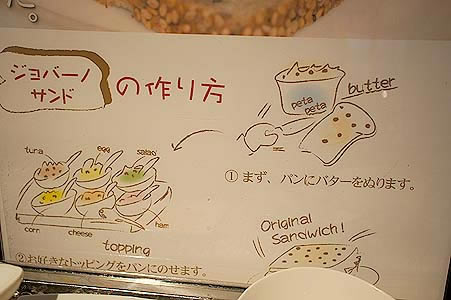 ジョバーノ
サンド
の作り方
butter
peta
peta
① まず、パンにバターをぬります。
tuna egg salad
corn cheese ham
topping
②お好きなトッピングをパンにのせます。
Original
Sandwich!